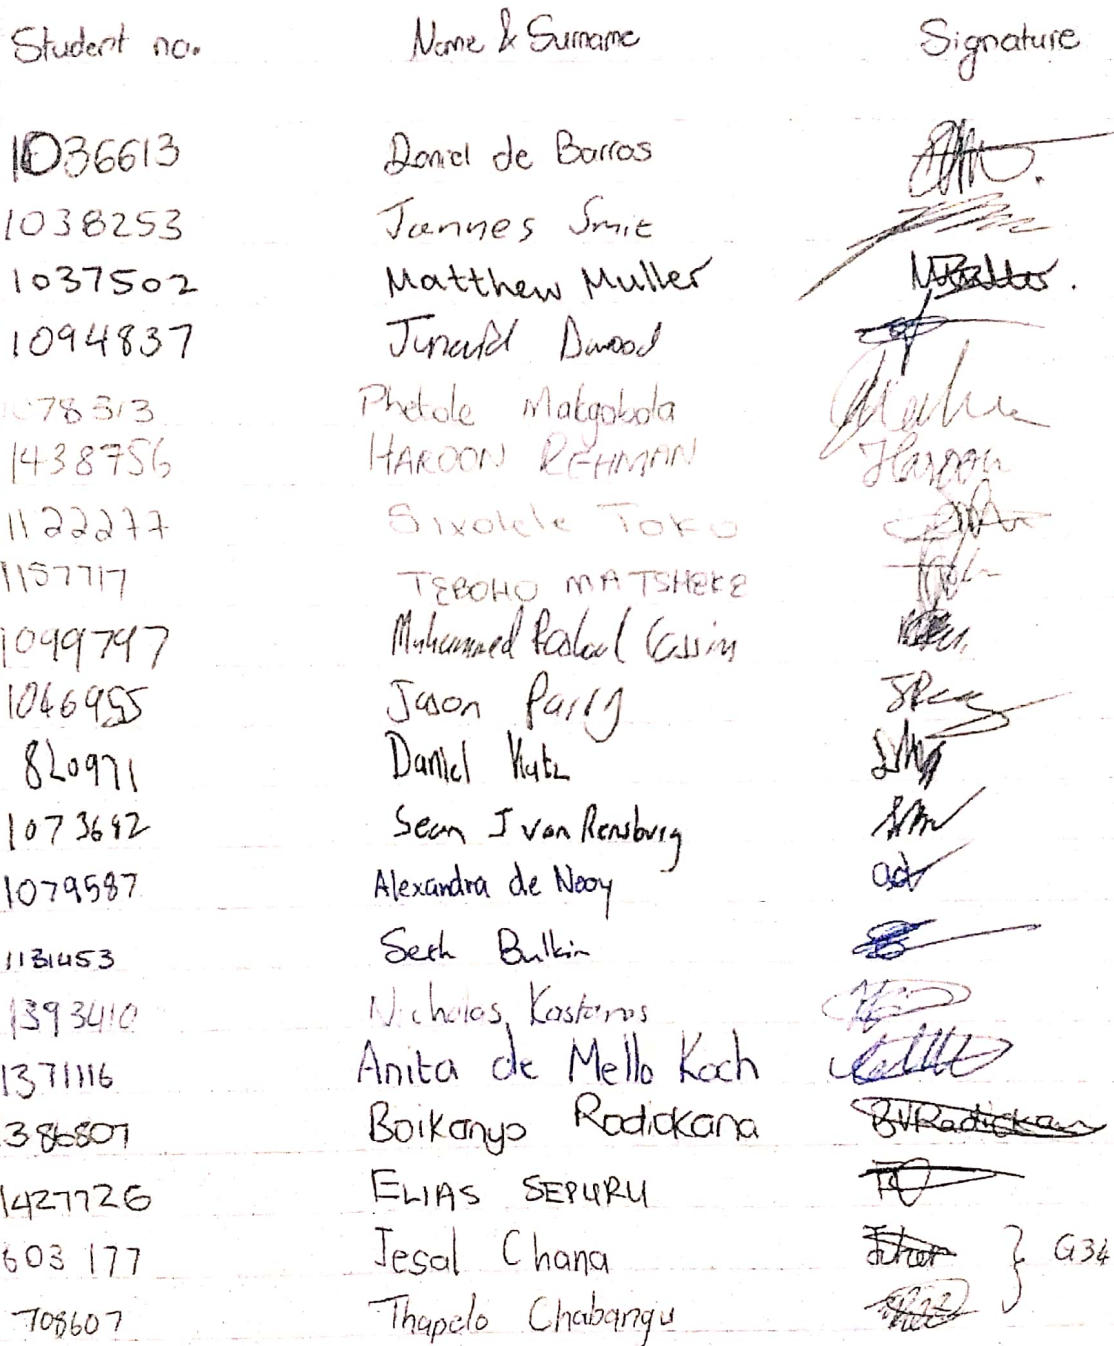 Student no. Name & Surname Signature
1036613 Daniel de Barros
1038253 Jannes Smit
1037502 Matthew Muller
1094837 Junaid Dawood
78313 Phetole Makgobola
1438756 HAROON REHMAN Haroon
1122277 Sixolele Toko
1157717 TEBOHO MATSHEKE
1099797 Muhammed Cassim
1046955 Jason Parry
820971 Daniel Katz
1073682 Sean J van Rensburg
1079587 Alexandra de Nooy
1131453 Seth Bulkin
1393410 Nicholas Kastanos
1371116 Anita de Mello Koch
386807 Boikanyo Radiokana BVRadiokana
1427726 ELIAS SEPURU
603 177 Jesal Chana } G34
708607 Thapelo Chabangu